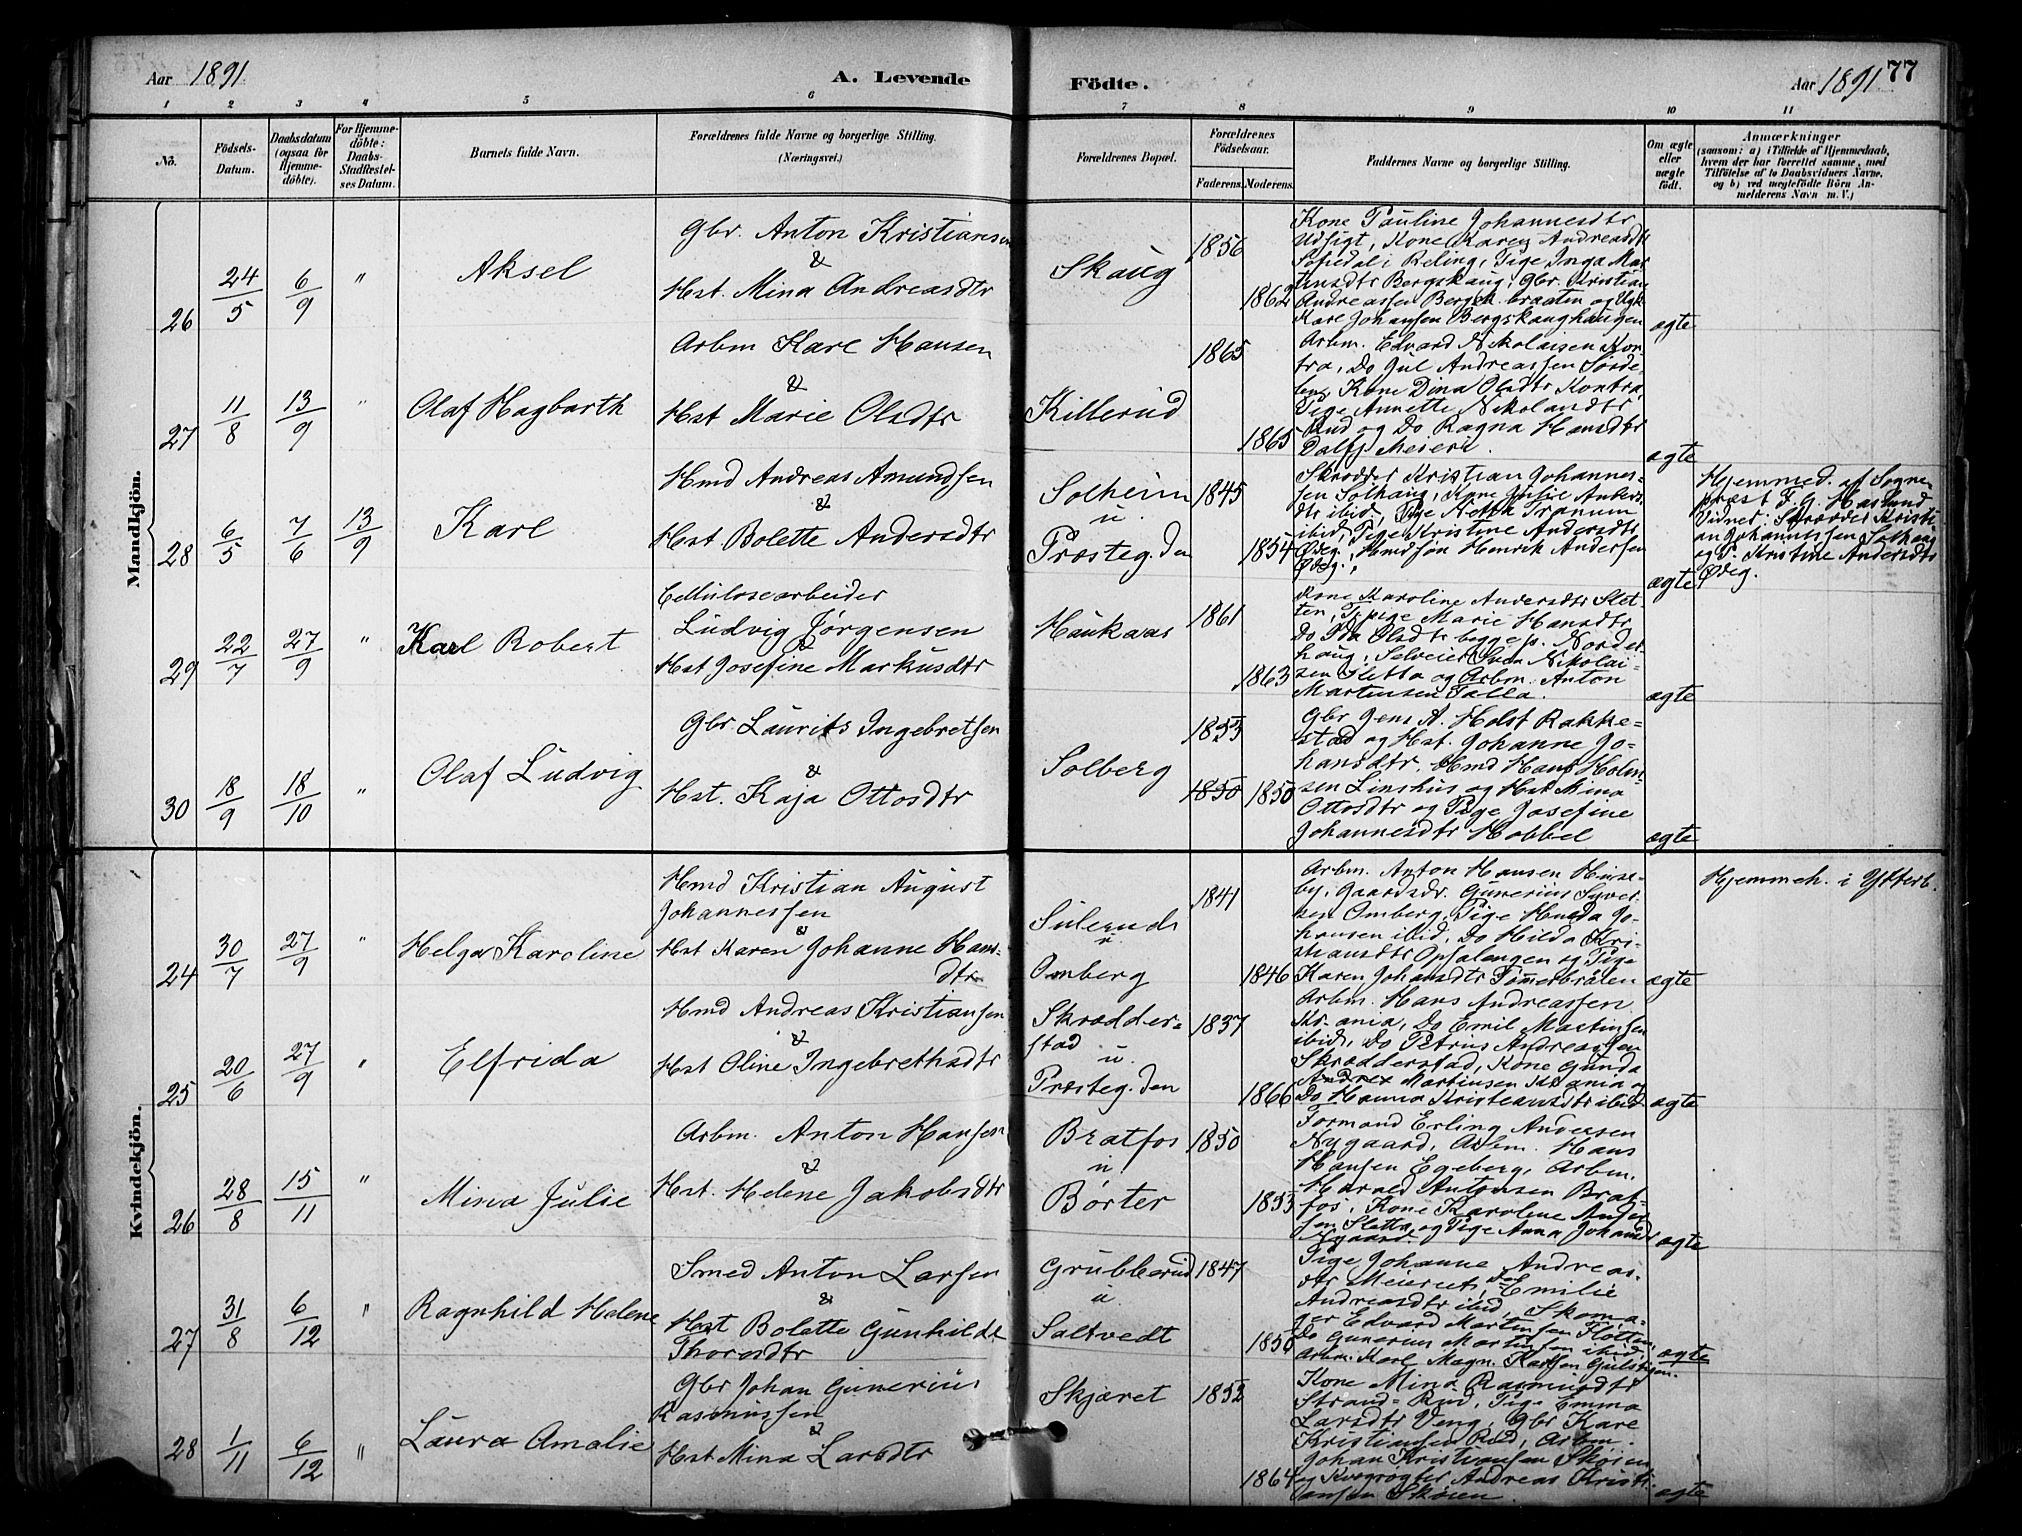 Aar 1891
A. Levende
Fødte.
Aar 1891
77
1 2 3 4 5 6 7 8 9 10 11
No.
Födsels-
Datum.
Daabsdatum
(ogsaa for
Hjemme-
döbte).
For Hjemme-
döbte:
Daabs-
Stadfæstel-
ses Datum.
Barnets fulde Navn.
Forældrenes fulde Navne og borgerlige Stilling.
(Næringsvei.)
Forældrenes Bopæl.
Forældrenes
Födselsaar.
Faderens.
Moderens.
Faddernes Navne og borgerlige Stilling.
Om ægte
eller
uægte
födt.
Anmærkninger
(saasom: a) i Tilfælde af Hjemmedaab,
hvem der har forrettet samme, med
Tilføielse af to Daabsvidners Navne,
og b) ved uægtefödte Börn An-
melderens Navn m. V.)
Mandkjön.
26 24/5 6/9 " Aksel
Gbr. Anton Kristiansen
&
Hst. Mina Andreasdtr
Skaug
1856
1862
Kone Pauline Johannesdtr
Udsigt, Kone Karen Andreasdtr
Sopedal i Reling, Pige Inga Mar
tinsdtr Bergskaug, Gbr. Kristian
Andreassen Bergsk.braaten og Ugk.
Karl Johansen Bergskaughaugen
ægte
27 11/8 13/9 " Olaf Hagbarth
Arbm Karl Hansen
&
Hst Marie Olsdtr
Killerud
1865
1865
Arbm. Edvard Nikolaisen Kon-
tra, Do Jul Andreassen Sørde-
Kone Dina Olsdtr Kontra,
Pige Annette Nikolaidtr
Rud og Do Ragna Hansdtr
Dalfj. Meieri.
ægte
28 6/5 7/6 13/9 Karl
Hmd Andreas Amundsen
&
Hst Bolette Andersdtr
Solheim
u.
Præsteg.den
1845
1854
Skrædder Kristian Johannes-
sen Solhaug, Kone
dtr ibid, Pige Tranum
ibid, Pige Kristine Andersdtr
Ødeg., Hmdsøn Henrik Andersen
Ødeg.
ægte
Hjemmed. af Sogne-
præst F. G. Haslund
Vidner: Skrædder Kristi-
an Johannessen Solhaug
og P. Kristine Andersdtr
Ødeg.
29 22/7 27/9 " Karl Robert
Cellulosearbeider
Ludvig Jørgensen
&
Hst Josefine Markusdtr
Haukaas
1861
1863
Kone Karoline Andersdtr Slet-
ten, Tj.pige Marie Hansdtr
Do Ida Olsdtr begge p. Norder
haug, Selveier Sven Nikolai-
sen Sletta og Arbm. Anton
Martensen Talla.
ægte
30 18/9 18/10 " Olaf Ludvig
Gbr Laurits Ingebretsen
&
Hst. Kaja Ottosdtr
Solberg
1853
1850 1850
Gbr Jens A. Holst Rakke-
stad og Hst. Johanne Jo-
hansdtr. Hmd Hans Holm-
sen Linshus og Hst Mina
Ottosdtr og Pige Josefine
Johannesdtr Hobbel
ægte
Kvindekjön.
24 30/7 27/9 " Helga Karoline
Hmd Kristian August
Johannessen
&
Hst Karen Johanne Hans-
dtr
Sulerud
u
Omberg
1841
1846
Arbm. Anton Hansen Huse-
by, Gaardsdr. Gunerius Syver-
sen Omberg, Pige Hulda Jo-
hansen ibid, Do Hilda Kri-
stiansdtr Opsalengen og Pige
Karen Johansdtr Tømerbråten
ægte
Hjemmeh. i Ytterb.
25 20/6 27/9 " Elfrida
Hmd Andreas Kristiansen
&
Hst Oline Ingebrethsdtr
Skrædder-
stad
u.
Præsteg.den
1837
1866
Arbm. Hans Andreassen
Kr.ania, Do Emil Martinsen
ibid, Do Petrus Andreassen
Skrædderstad, Kone Gunda
Martinsen Kr.ania og
Do Hanna Kristiansdtr ibid
ægte
26 28/8 15/11 " Mina Julie
Arbm. Anton Hansen
&
Hst. Helene Jakobsdtr
Bratfos
u.
Børter
1850
1853
Formand Erling Andersen
Nygaard, Arbm. Hans
Hansen Egeberg, Arbm.
Harald Antonsen Brat-
fos, Kone Karoline Ander
sen Sletta og Pige Anna Johansd
Nygaard.
ægte
27 31/8 6/12 " Ragnhild Helene
Smed Anton Larsen
&
Hst Bolette Gunhilde
Thorsdtr
Grubberud
u
Saltvedt
1847
1850
Pige Johanne Andreas-
dtr Meieriet, Do Emilie
Andreasdtr ibid, Skoma-
ger Edvard Martinsen Fløtten,
Do Gunerius Martinsen ibid,
Arbm. Karl Magn. Karlsen Gulstigen.
ægte
28 1/11 6/12 " Laura Amalie
Gbr Johan Gunerius
Rasmussen
&
Hst Mina Larsdtr
Skjæret
1852
1864
Kone Mina Rasmusdtr
Strand-Rud, Pige Emma
Larsdtr Veng, Gbr Karl
Kristiansen Rud, Arbm.
Johan Kristiansen Skøien
og Kvægrøgter Andreas Kristi-
ansen Skøien.
ægte